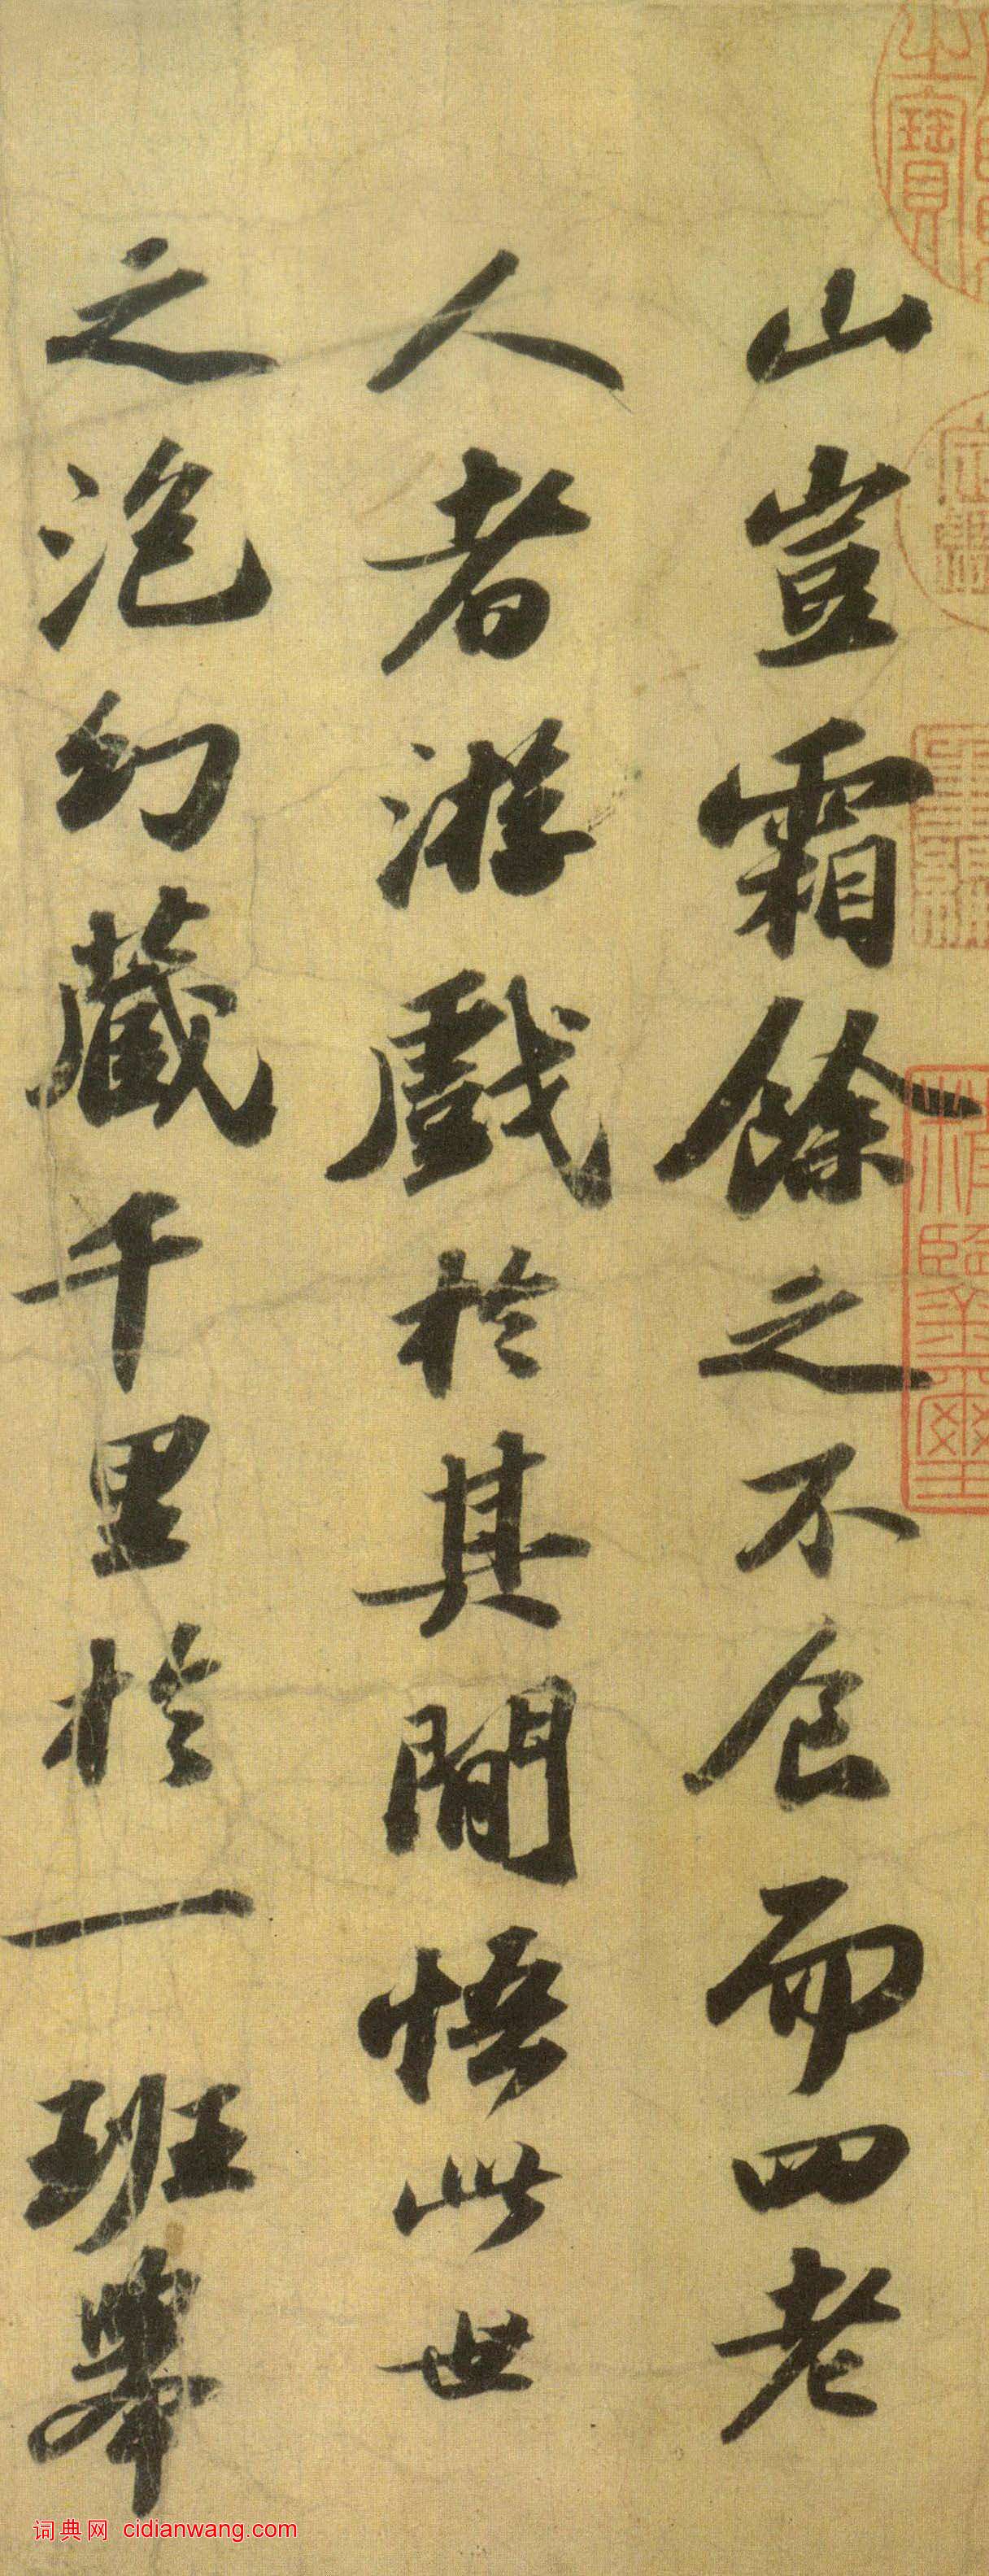 山豈霜餘之不食而四老
人者游戲於其閒悟此世
之泡幻藏千里於一班舉
词典网 cidianwang.com